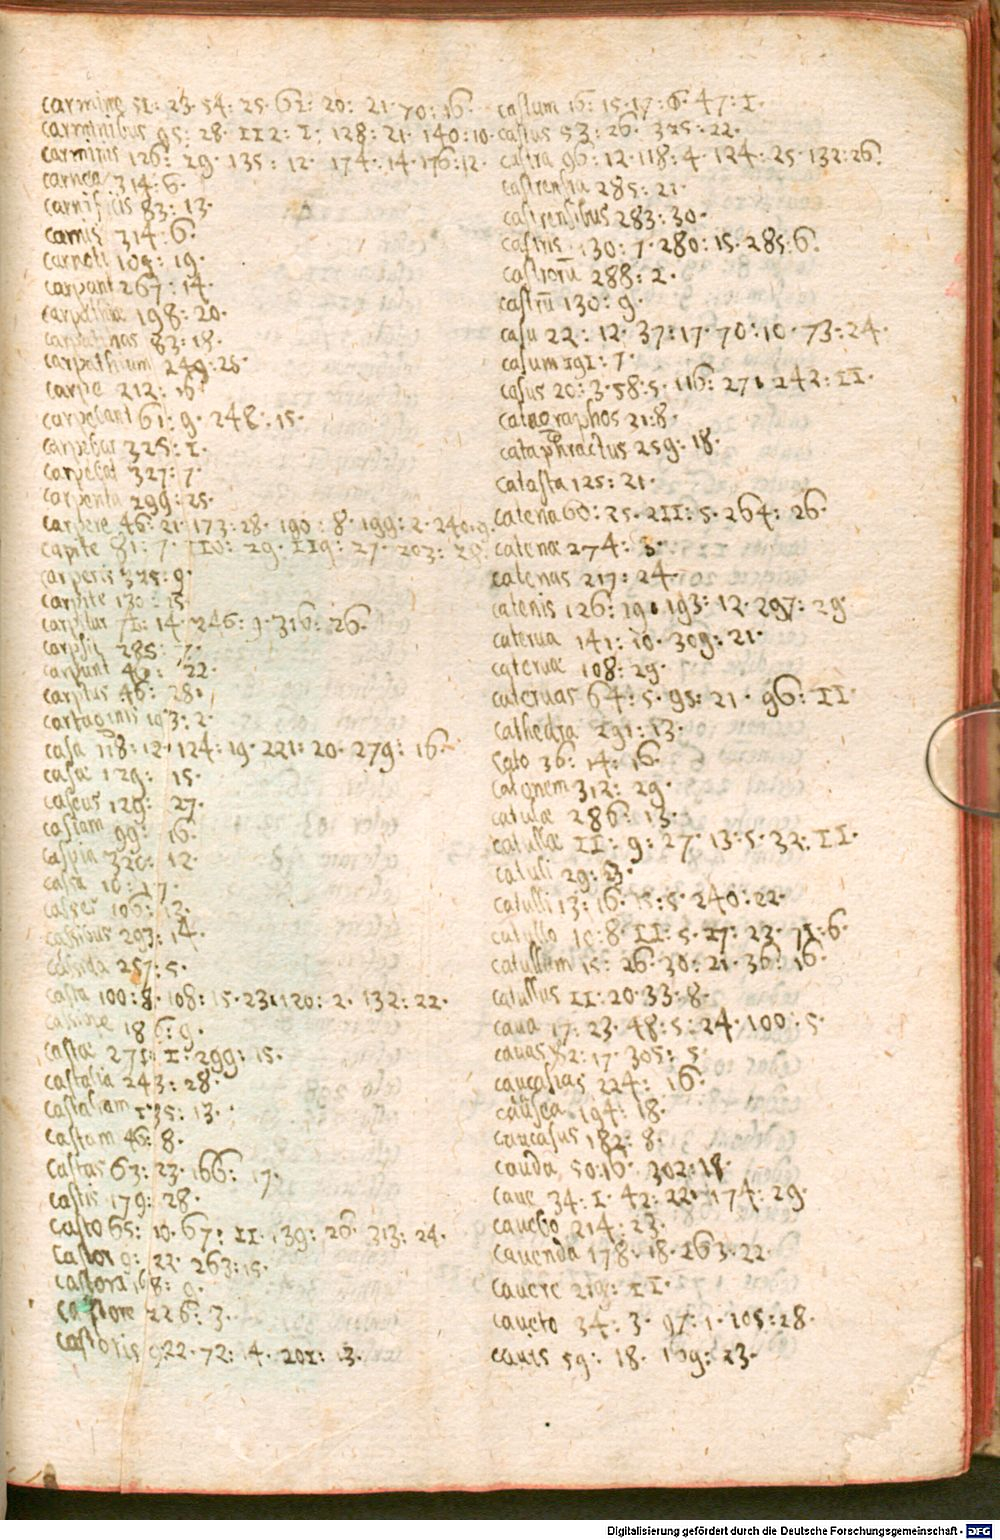 carmine 51: 23· 54: 25· 62: 20: 21· 70: 16·
carminibus 95: 28· 112: 1· 128: 21· 140: 10·
carminis 126: 29· 135: 12· 174: 14· 176: 12·
carnea 314: 6·
carnificis 83: 13·
carnis 314: 6·
carnoti 109: 19·
carpant 267: 14·
carpathiae 198: 20·
carpatinas 83: 18·
carpathium 249: 25·
carpe 212: 16·
carpebant 61: 9· 248: 15·
carpebar 325: 1·
carpebat 327: 7·
carpenta 299: 25·
carpere 46: 21· 173: 28· 190: 8· 199: 2· 240: 9·
capite 81: 7· 110: 29· 119: 27· 203: 28·
carperis 325: 9·
carpite 130: 15
carpitur 71: 14· 246: 9· 316: 26·
carpsit 285: 7·
carpunt 46: 22·
carptus 46: 28·
cartaginis 193: 2·
casa 118: 12· 124: 19· 221: 20· 279: 16·
casae 129: 15·
caseus 129: 27·
casiam 99: 16·
caspia 320: 12·
cassa 10: 17·
casses 106: 12·
cassibus 293: 14·
cassida 257: 5·
casta 100: 8· 108: 15· 231· 120: 2· 132: 22·
186: 9·
castae 271: 1· 299: 15·
castalia 243: 28·
castaliam 135: 13·
castam 46: 8·
castas 63: 23· 166: 17·
castis 179: 28·
casto 65: 10· 67: 11· 139: 26· 313: 24·
castor 9: 22· 263: 15·
castora 168: 9·
castore 226: 3·
castoris 22· 72: 14· 201: 13·
castum 16: 15· 17: 6· 47: 1·
castus 53: 26· 325: 22·
castra 96: 12· 118: 4· 124: 25· 132: 26·
castrensia 285: 21·
castrensibus 283: 30·
castris 130: 7· 280: 15· 285: 6·
castrorū 288: 2·
castrū 130: 9·
casu 22: 12· 37: 17· 70: 10· 73: 24·
casum 191: 7·
casus 20: 3· 58: 5· 116: 271· 242: 11·
catagraphos 21: 8·
cataphractus 259: 18·
catasta 125: 21·
catena 60: 25· 211: 5· 264: 26·
catenae 274: 3·
catenas 217: 24·
catenis 126: 19· 193: 12· 297: 29·
caterua 141: 10· 309: 21·
cateruae 108: 29·
cateruas 64: 5· 95: 21· 96: 11·
cathedra 291: 13·
cato 36: 14: 16·
catonem 312: 29·
catulae 286: 13·
catullae 11: 9: 27· 13: 5· 32: 11·
catuli 29: 3·
catulli 13: 16· 15: 5· 240: 22·
catullo 10: 8· 11: 5· 27: 23· 71: 6·
catullum 15: 26· 30: 21· 36: 16·
catullus 11: 20· 33: 8·
caua 17: 23· 48: 5: 24· 100: 5·
cauas 82: 17· 305: 5·
caucasias 224: 16·
194: 18·
caucasus 182: 8·
cauda 50: 16· 302: 18·
caue 34: 1· 42: 22· 174: 29·
cauebo 214: 23·
cauenda 178: 18· 263: 22·
cauere 219: 11·
caueto 34: 3· 97: 1· 105: 28·
cauis 59: 18· 169: 23·
Digitalisierung gefördert durch die Deutsche Forschungsgemeinschaft - DFG